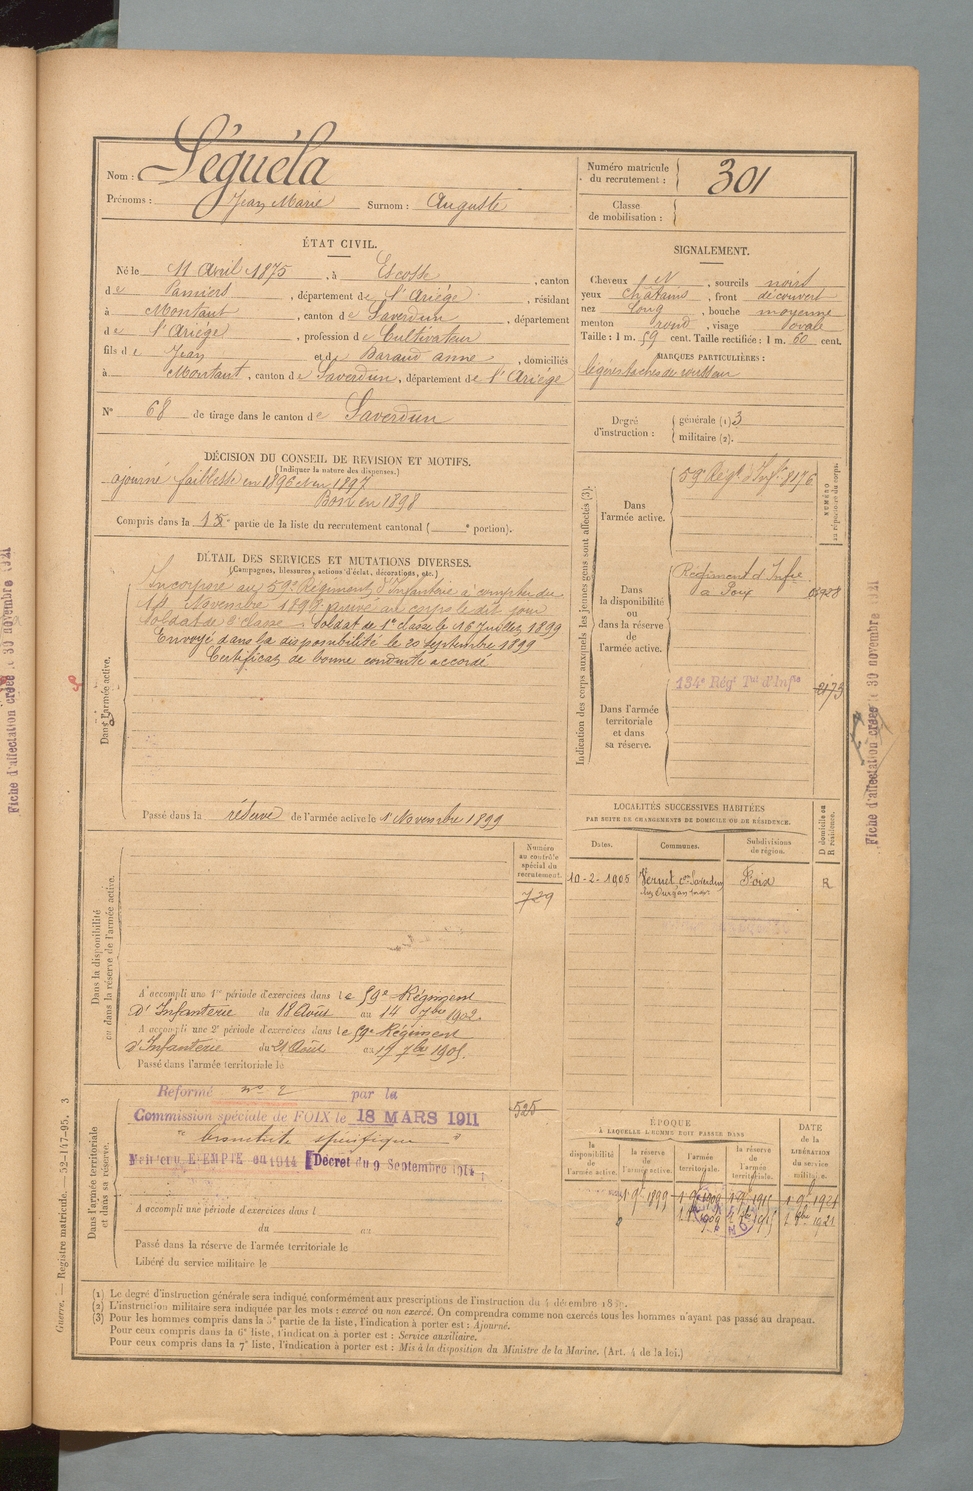 Nom : Séguéla
Prénoms : Jean Marie Surnom : Auguste
Numéro matricule du recrutement : 301
Classe de mobilisation :
ÉTAT CIVIL.
Né le 11 Avril 1875, à Escosse, canton
de Pamiers, département de l'Ariège, résidant
à Montaut, canton de Saverdun, département
de l'Ariège, profession de Cultivateur
fils de Jean et de Baraud anne, domiciliés
à Montaut, canton de Saverdun, département de l'Ariège
N° 68 de tirage dans le canton de Saverdun
SIGNALEMENT.
Cheveux N, sourcils noirs
yeux châtains, front découvert
nez long, bouche moyenne
menton rond, visage ovale
Taille : 1 m. 59 cent. Taille rectifiée : 1 m. 60 cent.
MARQUES PARTICULIÈRES :
légères taches de rousseur
Degré d'instruction : générale (1) 3
militaire (2).
DÉCISION DU CONSEIL DE REVISION ET MOTIFS.
(Indiquer la nature des dispenses.)
ajourné faiblesse en 1896 et en 1897
Bon en 1898
Compris dans la partie de la liste du recrutement cantonal ( e portion).
DÉTAIL DES SERVICES ET MUTATIONS DIVERSES.
(Campagnes, blessures, actions d'éclat, décorations, etc.)
Dans l'armée active.
Incorporé au 59e Régiment d'Infanterie à compter du
Novembre 1898 arrivé au corps le dit jour
soldat de 2e classe. Soldat de 1e classe le 16 Juillet 1899
Envoyé dans la disponibilité le 20 septembre 1899
Certificat de bonne conduite accordé
Passé dans la réserve de l'armée active le 1 Novembre 1899
Indication des corps auxquels les jeunes gens sont affectés (3).
NUMÉRO au répertoire du corps.
Dans l'armée active.
59e Régt d'Infie 8176
Dans la disponibilité ou dans la réserve de l'armée active.
Régiment d'Infie
Dans l'armée territoriale et dans sa réserve.
134e Régt Tal d'Infie
LOCALITÉS SUCCESSIVES HABITÉES
PAR SUITE DE CHANGEMENTS DE DOMICILE OU DE RÉSIDENCE.
D domicile ou R résidence.
Dates. Communes. Subdivisions de région.
10-2-1905 Vernet con Saverdun Foix R
Dans la disponibilité ou dans la réserve de l'armée active.
Numéro au contrôle spécial du recrutement.
729
A accompli une 1re période d'exercices dans le 59e Régiment
d'Infanterie du 18 Août au 14 7bre 1902
A accompli une 2e période d'exercices dans le 59e Régiment
d'Infanterie du 21 Août au 17 7bre 1905
Passé dans l'armée territoriale le
Dans l'armée territoriale et dans sa réserve.
Réformé n° 2 par la
Commission spéciale de FOIX le 18 MARS 1911
bronchite spécifique
525
Maintenu EXEMPTÉ en 1914 [Décret du 9 Septembre 1914]
A accompli une période d'exercices dans l
du au
Passé dans la réserve de l'armée territoriale le
Libéré du service militaire le
ÉPOQUE
À LAQUELLE L'HOMME DOIT PASSER DANS
la disponibilité de l'armée active.
la réserve de l'armée active.
l'armée territoriale.
la réserve de l'armée territoriale.
DATE de la LIBÉRATION du service militaire.
(1) Le degré d'instruction générale sera indiqué conformément aux prescriptions de l'instruction du 4 décembre
(2) L'instruction militaire sera indiquée par les mots : exercé ou non exercé. On comprendra comme non exercés tous les hommes n'ayant pas passé au drapeau.
(3) Pour les hommes compris dans la 5e partie de la liste, l'indication à porter est : Ajourné.
Pour ceux compris dans la 6e liste, l'indication à porter est : Service auxiliaire.
Pour ceux compris dans la 7e liste, l'indication à porter est : Mis à la disposition du Ministre de la Marine. (Art. 4 de la loi.)
Guerre. — Registre matricule. — 52-147-95. 3
Fiche d'affectation créée le 30 novembre 1921
Fiche d'affectation créée le 30 novembre 1921